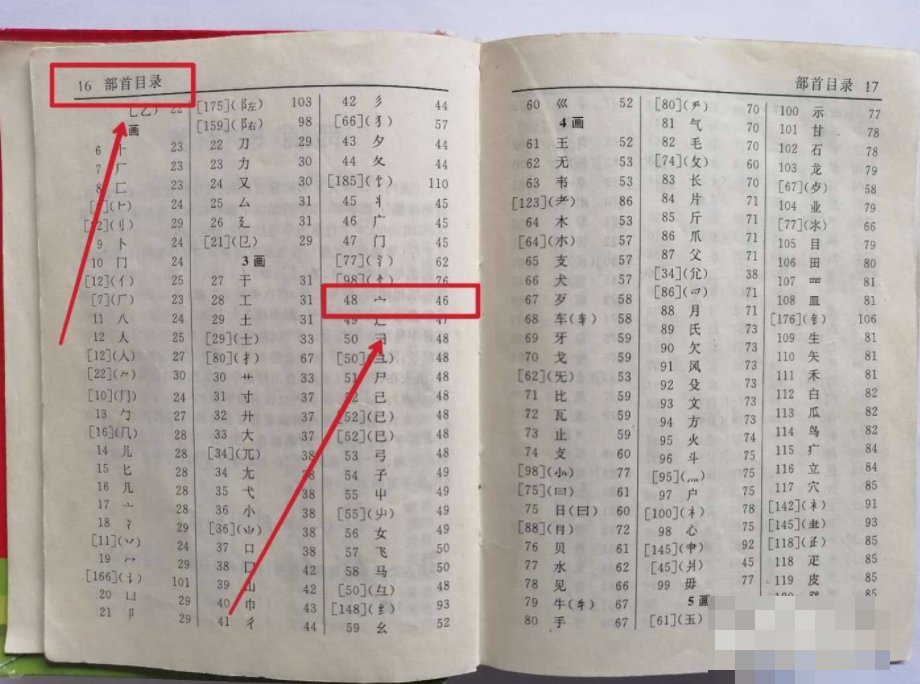 16 部首目录
[乙] 22
画
6 十 23
7 厂 23
8 匚 23
[ ](⺊) 24
[12](刂) 29
9 卜 24
10 冂 24
[12](亻) 25
[7](厂) 23
11 八 24
12 人 25
[12](入) 27
[22](⺈) 30
[10](⺆) 24
13 勹 27
[16](几) 28
14 儿 28
15 匕 28
16 几 28
17 亠 28
18 冫 29
[11](丷) 24
19 冖 29
[166](讠) 101
20 凵 29
21 卩 29
[175](阝左) 103
[159](阝右) 98
22 刀 29
23 力 30
24 又 30
25 厶 31
26 廴 31
[21](㔾) 29
3画
27 干 31
28 工 31
29 土 31
[29](士) 33
[80](扌) 67
30 艹 33
31 寸 37
32 廾 37
33 大 37
[34](兀) 38
34 尢 38
35 弋 38
36 小 38
[36](⺌) 38
37 口 38
38 囗 42
39 山 42
40 巾 43
41 彳 44
42 彡 44
[66](犭) 57
43 夕 44
44 夂 44
[185](饣) 110
45 丬 45
46 广 45
47 门 45
[77](氵) 62
[98](忄) 76
48 宀 46
49 辶 47
50 彐 48
[50](彑) 48
51 尸 48
52 己 48
[52](已) 48
[52](巳) 48
53 弓 48
54 子 49
55 屮 49
[55](屮) 49
56 女 49
57 飞 50
58 马 50
[50](彑) 48
[148](纟) 93
59 幺 52
部首目录 17
60 巛 52
4画
61 王 52
62 无 53
63 韦 53
[123](耂) 86
64 木 53
[64](朩) 57
65 支 57
66 犬 57
67 歹 58
68 车(车) 58
69 牙 59
70 戈 59
[62](旡) 53
71 比 59
72 瓦 59
73 止 59
74 攴 60
[98](⺗) 77
[75](曰) 61
75 日(曰) 60
[88](⺝) 72
76 贝 61
77 水 62
78 见 66
79 牛(牜) 67
80 手 67
[80](龵) 70
81 气 70
82 毛 70
[74](攵) 60
83 长 70
84 片 71
85 斤 71
86 爪 71
87 父 71
[34](尣) 38
[86](爫) 71
88 月 71
89 氏 73
90 欠 73
91 风 73
92 殳 73
93 文 73
94 方 73
95 火 74
96 斗 75
[95](灬) 75
97 户 75
[100](礻) 78
98 心 75
[145](肀) 92
[45](爿) 45
99 毋 77
5画
[61](玉)
100 示 77
101 甘 78
102 石 78
103 龙 79
[67](歺) 58
104 业 79
[77](氺) 66
105 目 79
106 田 80
107 罒 81
108 皿 81
[176](钅) 106
109 生 81
110 矢 81
111 禾 81
112 白 82
113 瓜 82
114 鸟 82
115 疒 84
116 立 84
117 穴 85
[142](衤) 91
[145](⺻) 93
[118](⺪) 85
118 疋 85
119 皮 85